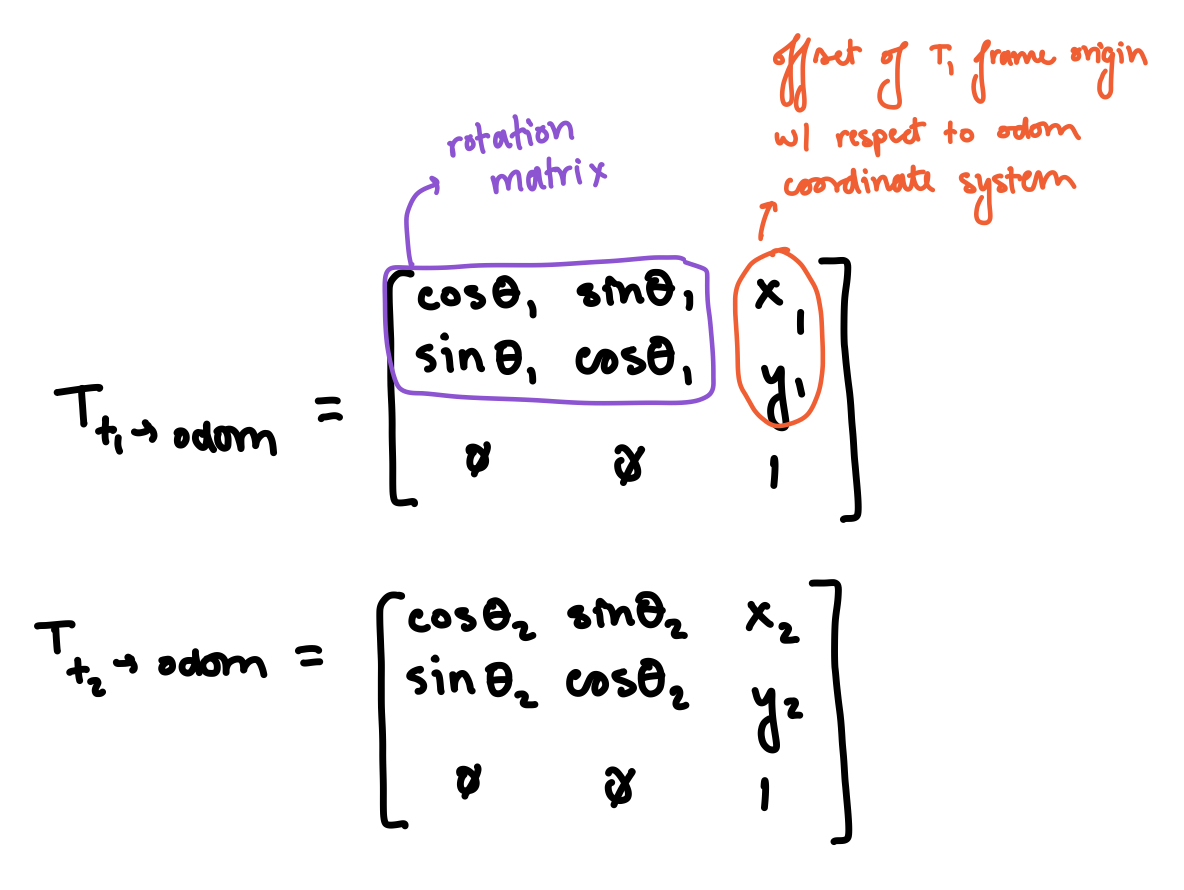 offset of T₁ frame origin
w/ respect to odom
coordinate system
rotation
matrix
cosθ₁ sinθ₁ x₁
sinθ₁ cosθ₁ y₁
T t₁→odom =
0 0 1
cosθ₂ sinθ₂ x₂
sinθ₂ cosθ₂ y₂
T t₂→odom =
0 0 1